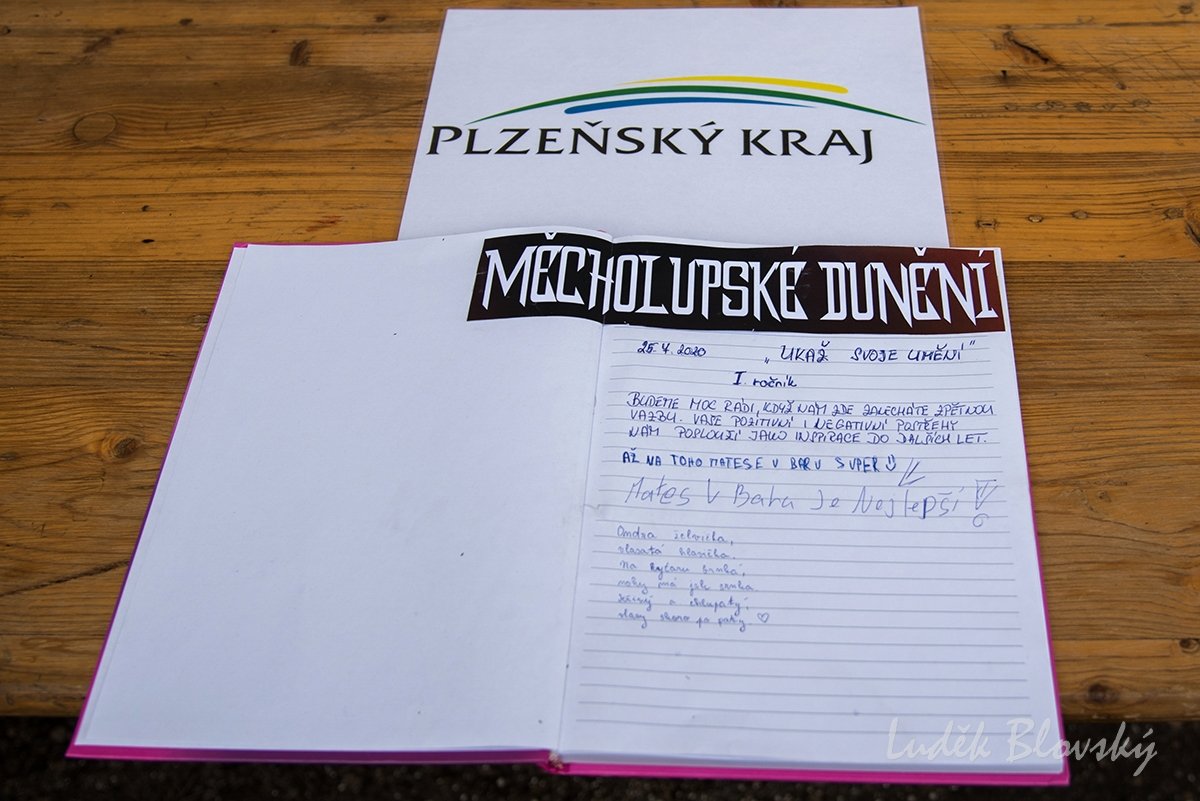 PLZEŇSKÝ KRAJ
MĚCHOLUPSKÉ DUNĚNÍ
25.4.2020 „UKAŽ SVOJE UMĚNÍ“
I. ročník
BUDEME MOC RÁDI, KDYŽ NÁM ZDE ZALECHÁTE ZPĚTNOU
VAZBU. VAŠE POZITIVNÍ I NEGATIVNÍ POSTŘEHY
NÁM POSLOUŽÍ JAKO INSPIRACE DO DALŠÍCH LET.
AŽ NA TOHO MATESE V BARU SUPER
Mates V Baru Je Nejlepší!
Ondra želvička,
vlasatá hlavička.
Na kytaru brnká,
nohy má jak srnka.
a chlupatý,
vlasy skoro po paty ♡
Luděk Blovský